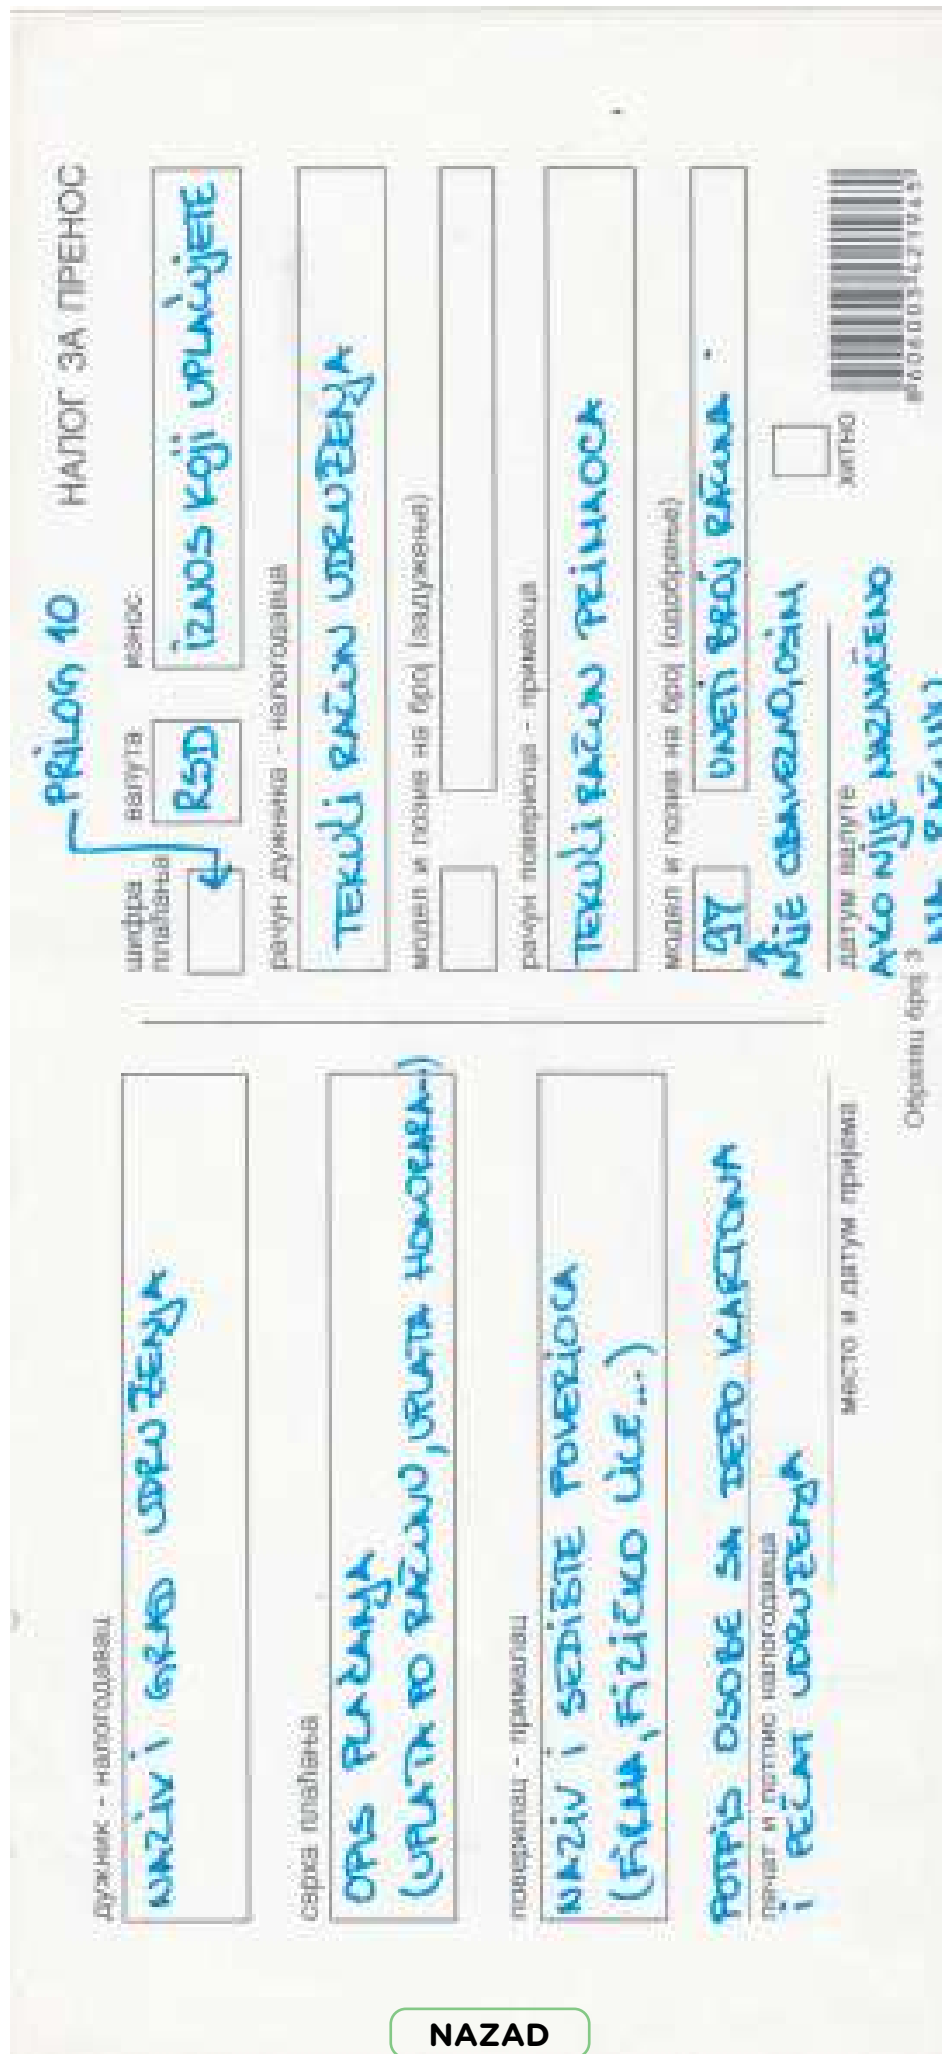 PRILOG 10
НАЛОГ ЗА ПРЕНОС
дужник - налогодавац
NAZIV I GRAD UDRUŽENJA
сврха плаћања
OPIS PLAĆANJA
(UPLATA PO RAČUNU, UPLATA HONORARA...)
поверилац - прималац
NAZIV I SEDIŠTE POVERIOCA
(FIRMA, FIZIČKO LICE...)
POTPIS OSOBE SA DEPO KARTONA
печат и потпис налогодавца
I PEČAT UDRUŽENJA
место и датум пријема
Образац број 3
шифра
плаћања
валута
износ
RSD
IZNOS KOJI UPLAĆUJETE
рачун дужника - налогодавца
TEKUĆI RAČUN UDRUŽENJA
модел и позив на број (задужење)
рачун повериоца - примаоца
TEKUĆI RAČUN PRIMAOCA
модел и позив на број (одобрење)
97
UNETI BROJ RAČUNA
NIJE OBAVEZNO, OSIM,
датум валуте
хитно
AKO NIJE NAZNAČENO
NA RAČUNU
NAZAD